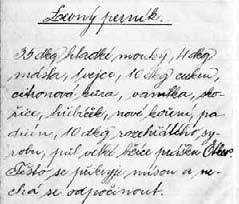 Levný perník.
35 deg hladké mouky, 4 deg
másla, 1 vejce, 10 deg cukru,
citronová kůra, vanilka, sko-
řice, hřebíček, nové koření, ba-
dián, 10 deg rozehřátého sy-
robu, půl velké lžíce prášku Oetker.
Těsto se přikryje mísou a ne-
chá se odpočinout.